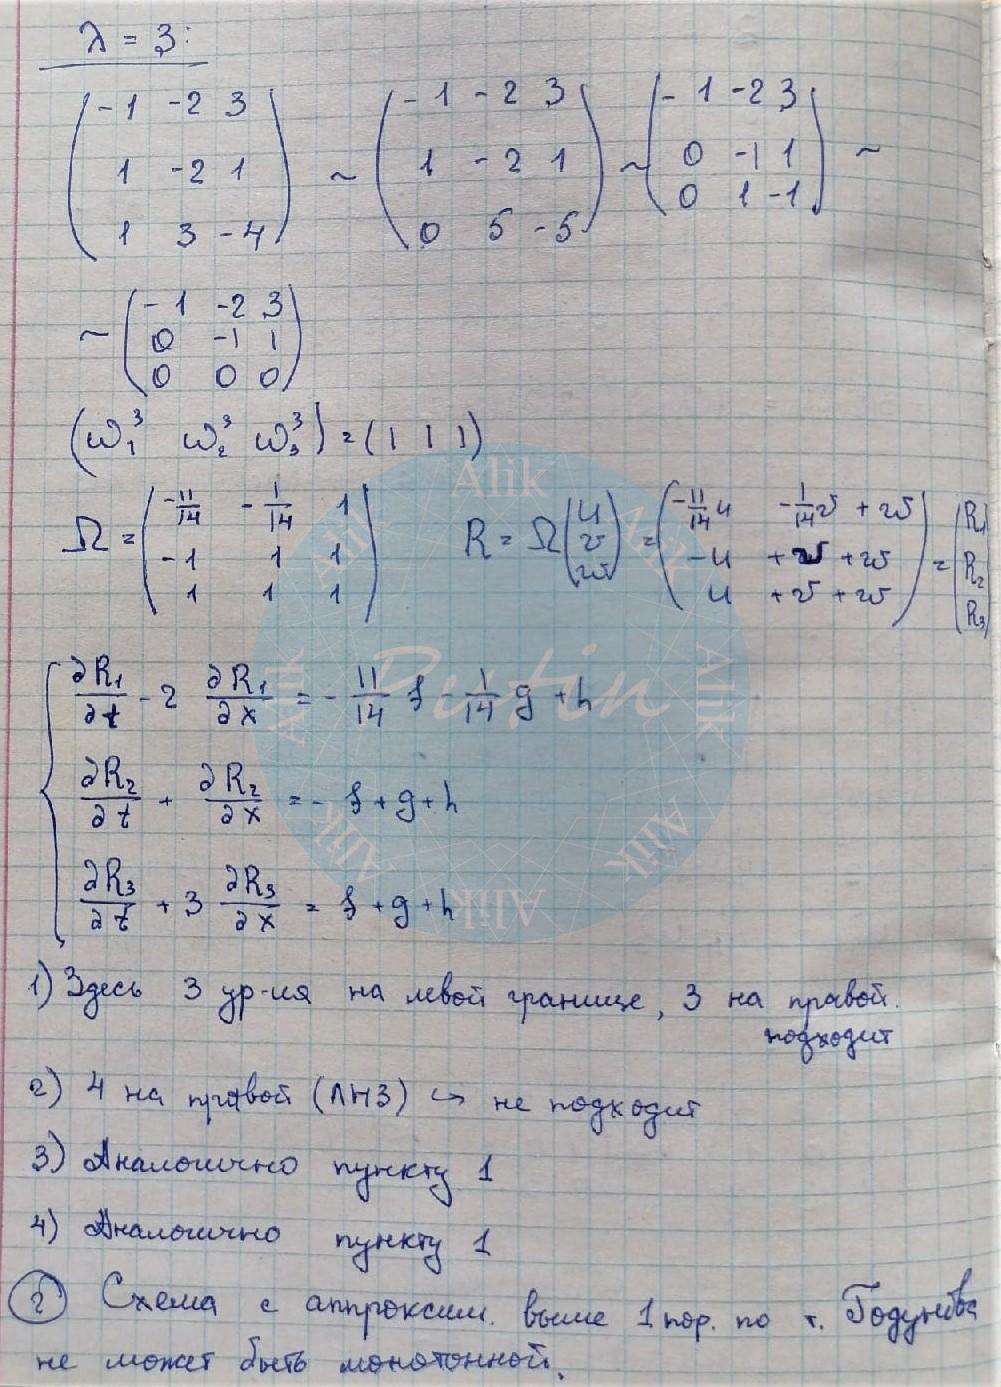 λ = 3:
( -1 -2 3 ; 1 -2 1 ; 1 3 -4 ) ~ ( -1 -2 3 ; 1 -2 1 ; 0 5 -5 ) ~ ( -1 -2 3 ; 0 -1 1 ; 0 1 -1 ) ~
~ ( -1 -2 3 ; 0 -1 1 ; 0 0 0 )
(ω₁³ ω₂³ ω₃³) = (1 1 1)
Ω = ( -11/14 -1/14 1 ; -1 1 1 ; 1 1 1 ) R = Ω ( u ; v ; w ) = ( -11/14 u -1/14 v + w ; -u + v + w ; u + v + w ) = ( R₁ ; R₂ ; R₃ )
∂R₁/∂t - 2 ∂R₁/∂x = - 11/14 f - 1/14 g + h
∂R₂/∂t + ∂R₂/∂x = - f + g + h
∂R₃/∂t + 3 ∂R₃/∂x = f + g + h
1) Здесь 3 ур-ия на левой границе, 3 на правой.
подходит
2) 4 на правой (ЛНЗ) ↪ не подходит
3) Аналогично пункту 1
4) Аналогично пункту 1
② Схема с аппроксим. выше 1 пор. по т. Годунова
не может быть монотонной.
Alik
Alik
Alik
Alik
Alik
Alik
Alik
Alik
Putin